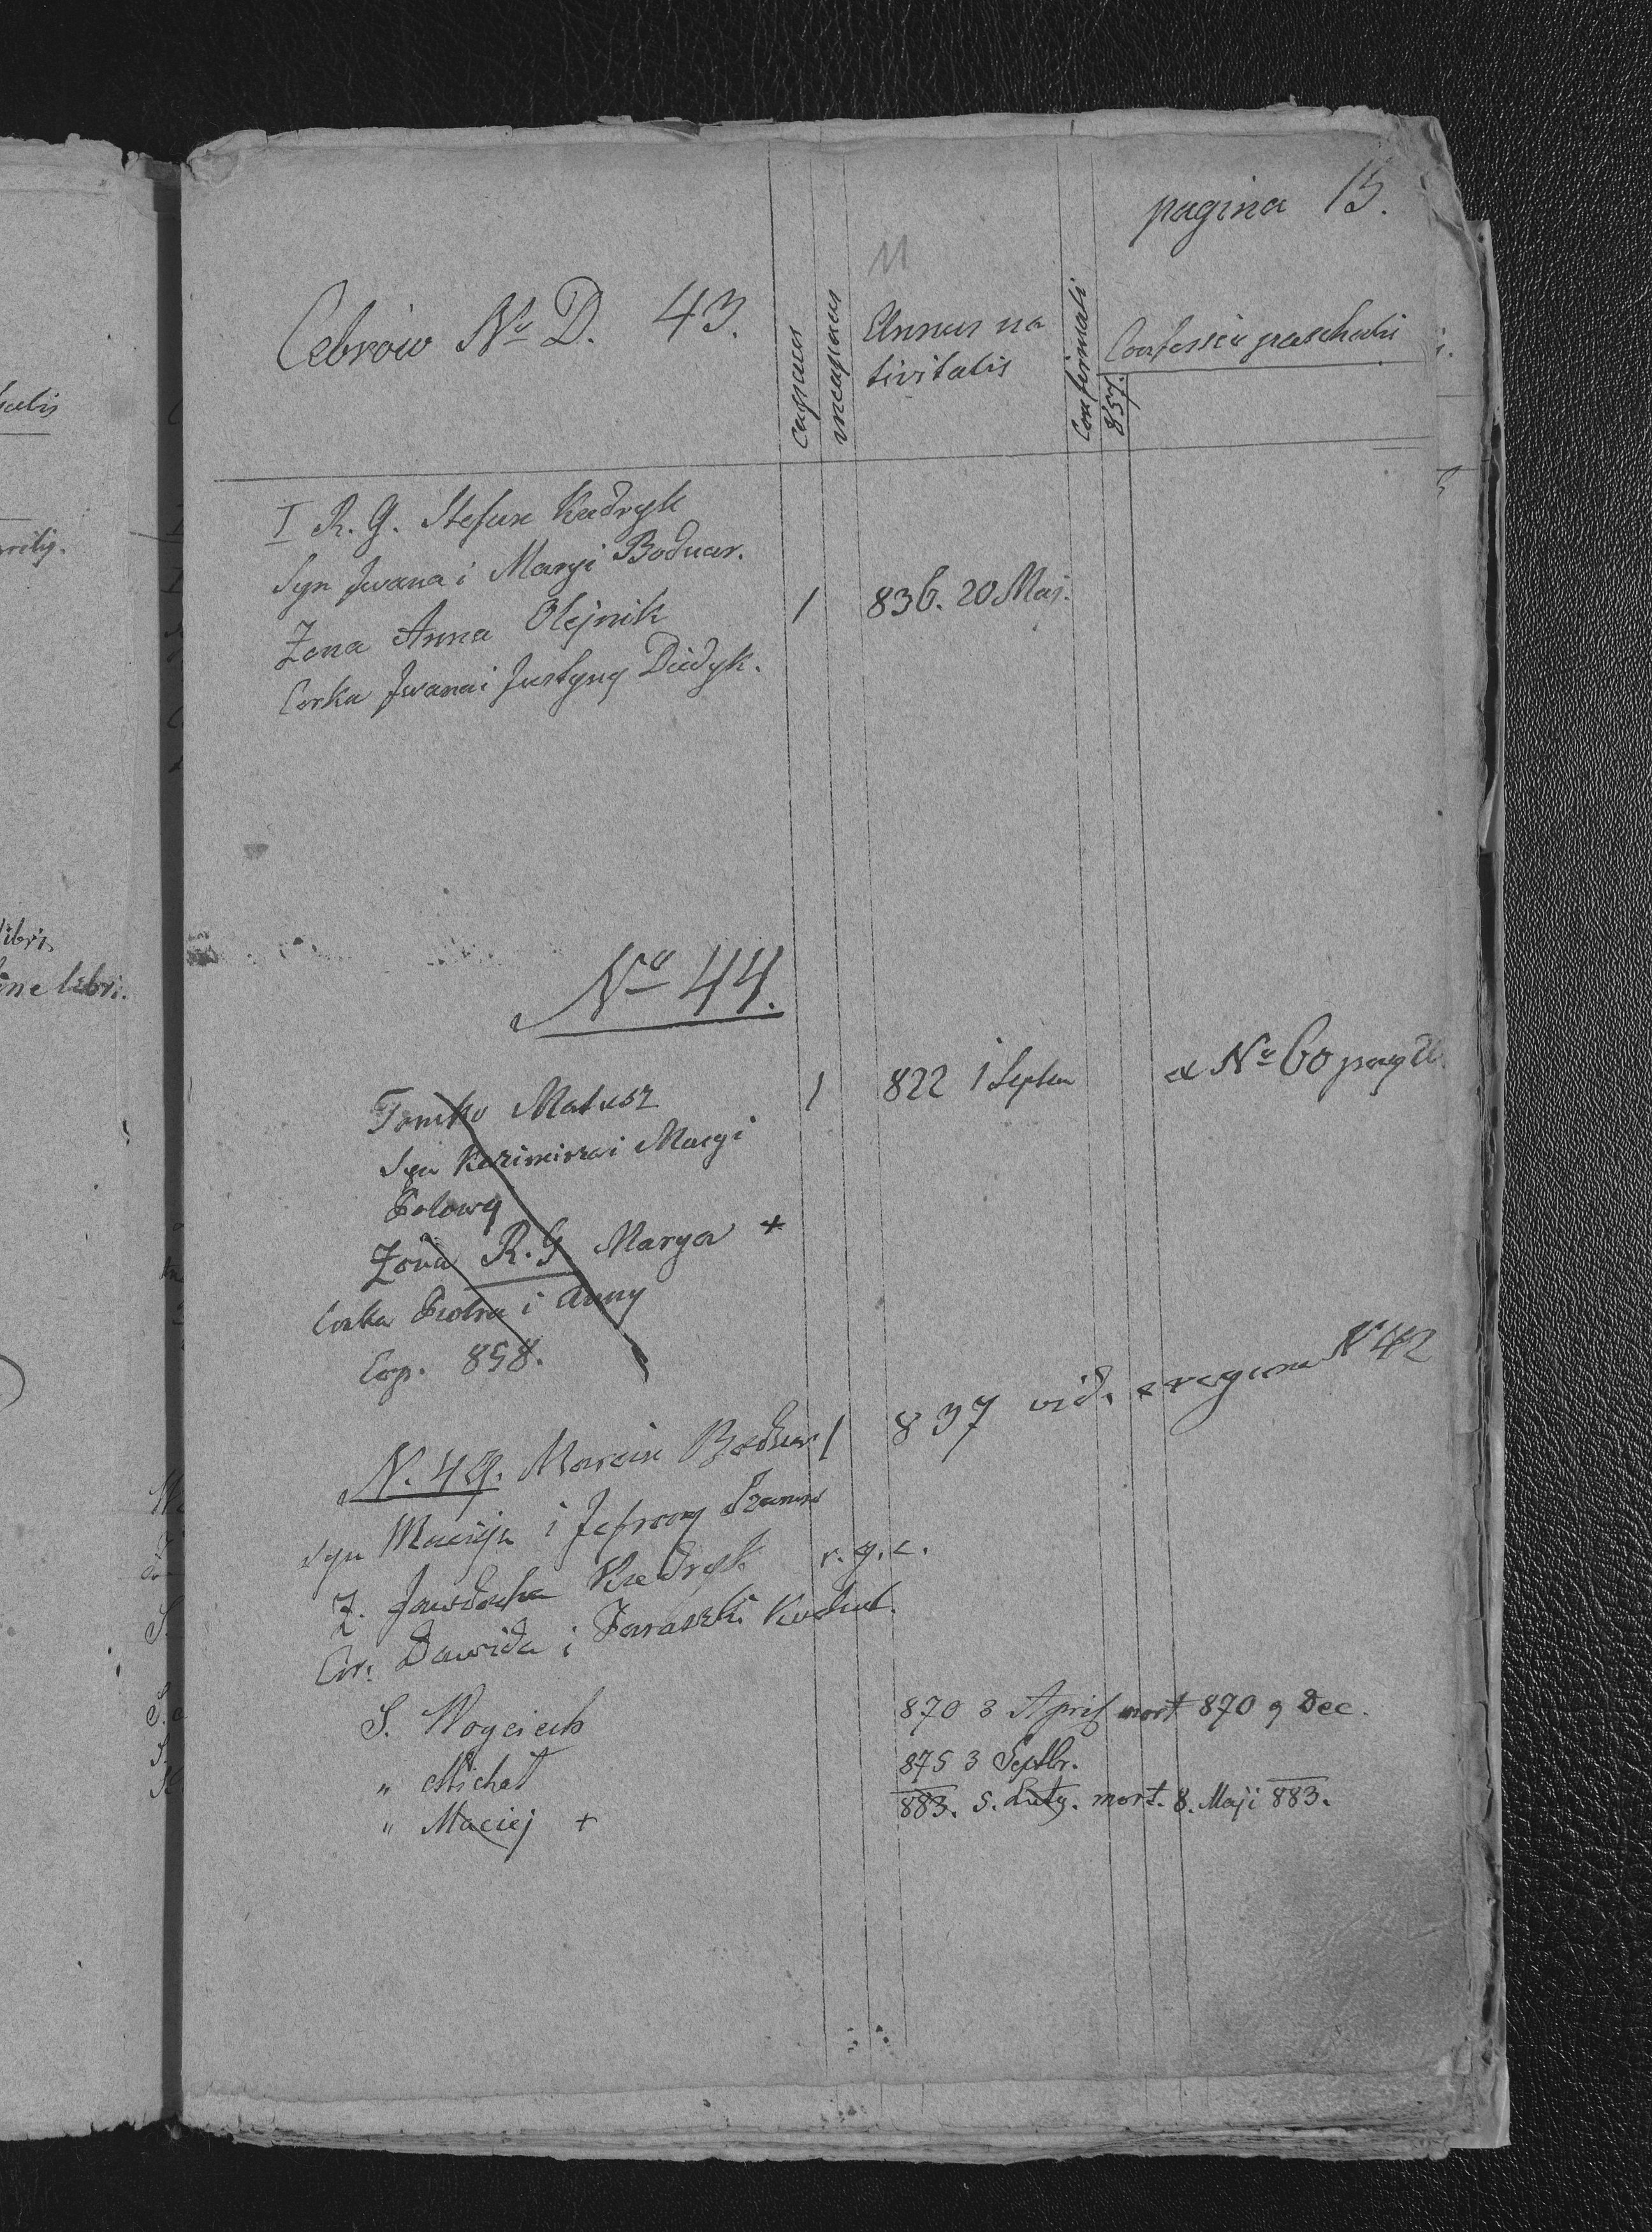 pagina 15.
11
Cebrow No D. 43.
capaces
incapaces
Annus na
tivitatis
Confirmati
Confessio paschalis
857.
I R. G. Stefan Kudryk
Syn Jwana i Maryi Bodnar.
1 836. 20 Maj.
Zona Anna Olejnik
Corka Jwana i Justyny Diedyk.
No 44.
Tomko Matusz 1 822 1 Septem ex No 60 pag
Syn Kazimirza i Maryi
Zona R. G. Marya +
Corka Piotra i Anny
Cop. 858.
N. 49. Marcin Bodnar 1 837 vid. e regione No 42
Syn Macieja i
Z. Jawdocha Kudryk r. g. c.
Cor. Dawida i Paraszki
S. Woyciech 870 3 April mort 870 9 Dec.
" Michał 875 3 Septbr.
" Maciej + 883. 5. Luty. mort. 8. Maji 883.